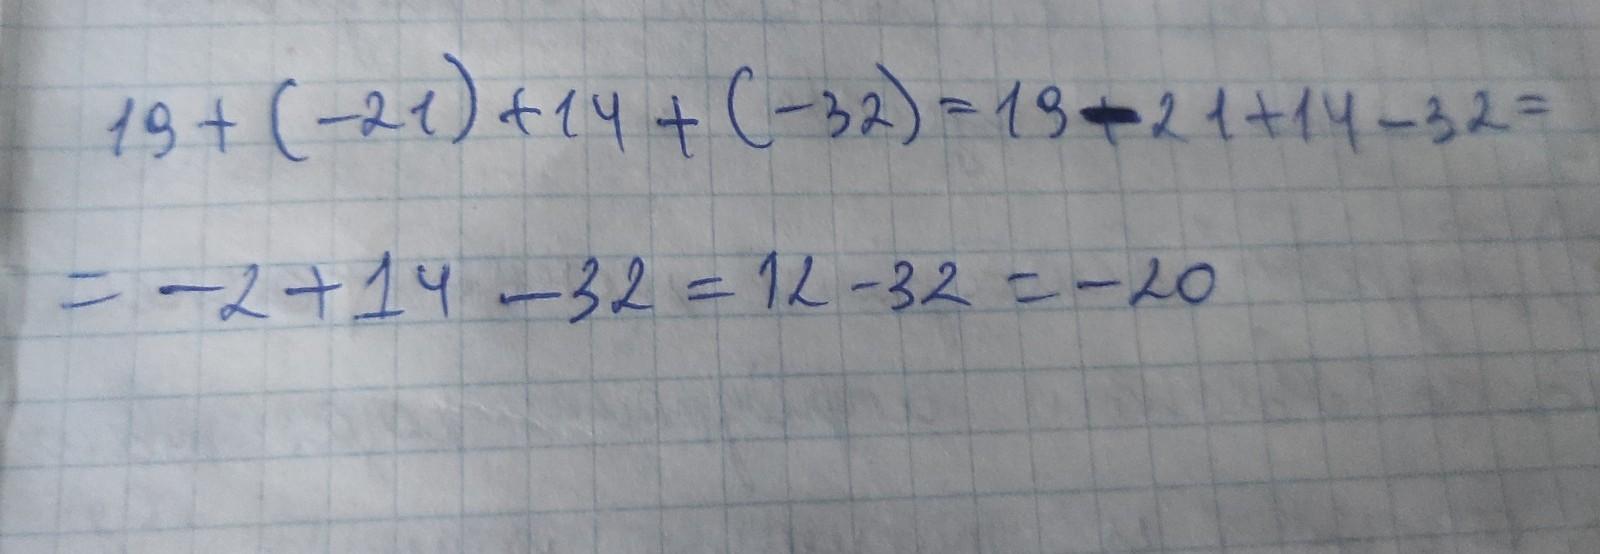 19+(-21)+14+(-32)=19-21+14-32=
=-2+14-32=12-32=-20